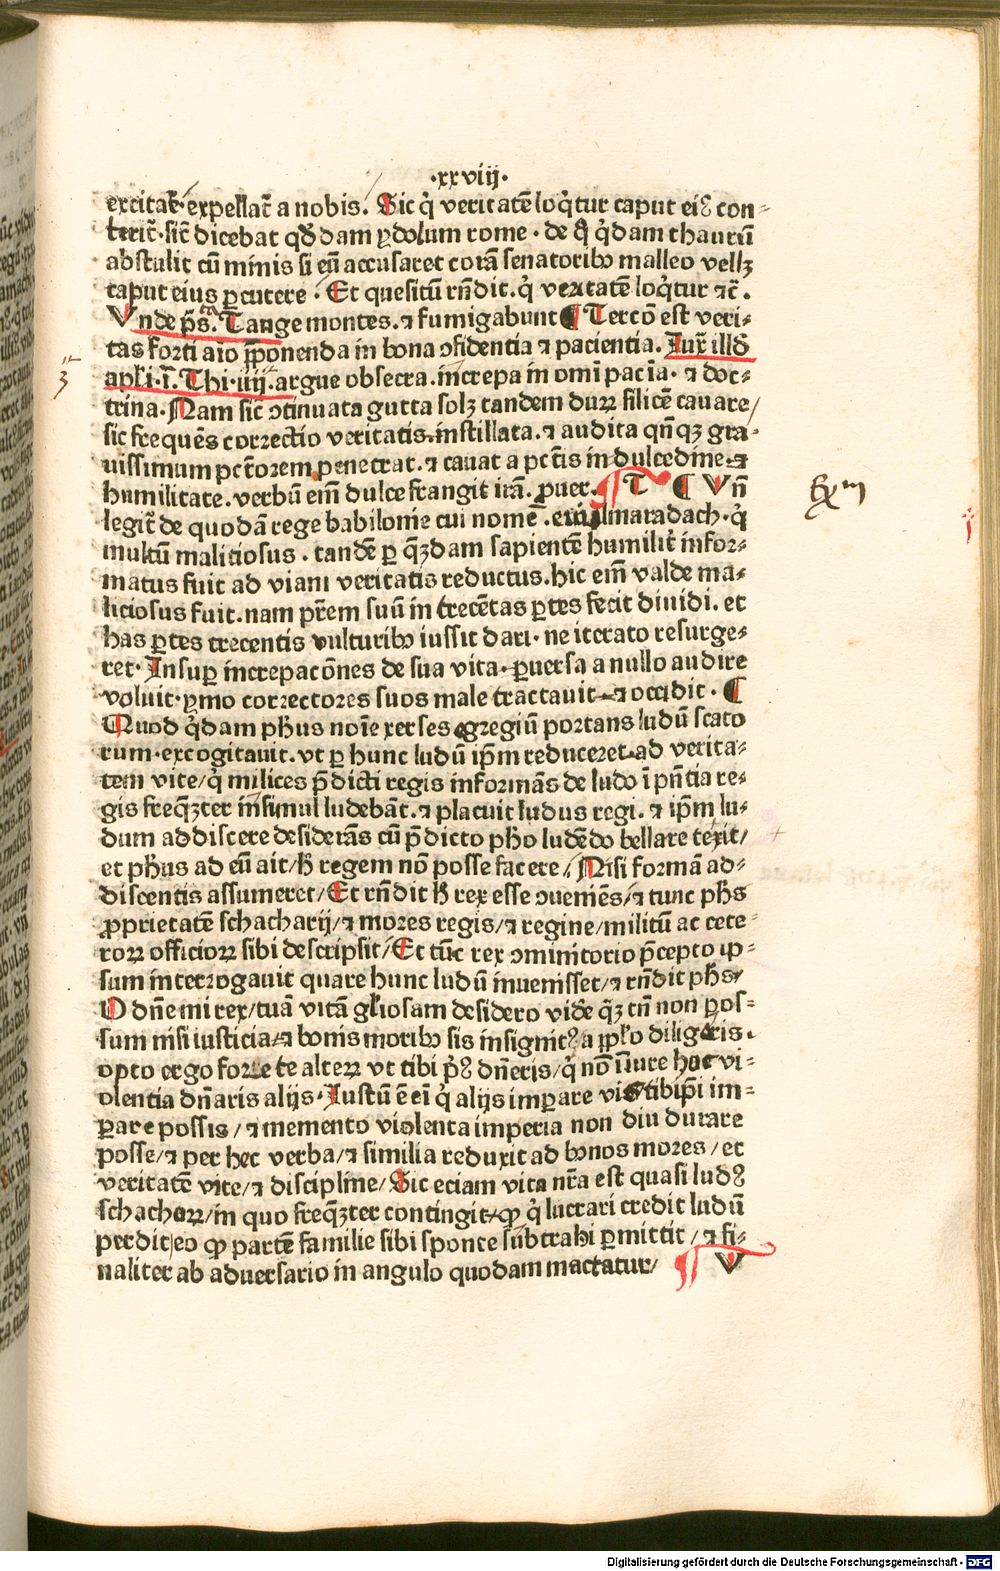 ·xxviij·
excitat̄·expellat̄ a nobis. Sic q̇ veritatē loq̇tur caput eiꝰ con⸗
terit̄·sic̄ dicebat qd̄dam ydolum rome·de quo q̇dam thaurū
abstulit cū minis si eū accusaret corā senatoribꝰ malleo vellꝫ
caput eius ꝑcutere. Et quesitū rn̄dit.q̇ veritatē loq̇tur ⁊c̄.
Vnde p̄s. Tange montes.⁊ fumigabunt ¶ Tercō est veri⸗
tas forti aīo ꝓponenda in bona ↄfidentia ⁊ paciencia. Iux̄ illđ
apl̄i·i. Thi·iiij.argue obsecra.increpa in om̄i paciā·⁊ doc⸗
trina. Nam sic̄ ↄtinuata gutta solꝫ tandem duꝝ silicē cauare/
sic frequēs correctio veritatis.instillata.⁊ audita qn̄qꝫ gra⸗
uissimum pctōrem penetrat.⁊ cauat a pctīs in dulcedine⸗⁊
humilitate. verbū em̄ dulce frangit irā. ꝓuer. T ¶ Vn̄
legit̄ de quodā rege babilonie cui nomē.euilmaradach·q̇
multū maliciosus.tandē ꝑ quēdam sapientē humilit̄ infor⸗
matus fuit ad viam veritatis reductus.hic em̄ valde ma⸗
liciosus fuit.nam pr̄em suū in trecētas ꝑtes fecit diuidi.et
has ꝑtes trecentis vulturibꝰ iussit dari·ne iterato resurge⸗
ret. Insuꝑ increpacōnes de sua vita·ꝑuersa a nullo audire
voluit·ymo correctores suos male tractauit⸗⁊ occidit. ¶
Quod q̇dam phūs noīe xerses egregiū portans ludū scato
rum·excogitauit.vt ꝑ hunc ludū ip̄m reduceret.ad verita⸗
tem vite/q̇ milices p̄dicti regis informās de ludo ī pn̄tia re⸗
gis freqn̄ter insimul ludebāt.⁊ placuit ludus regi.⁊ ip̄m lu⸗
dum addiscere desiderās cū p̄dicto pho ludēdo bellare cepit/
et phūs ad eū ait/h̄ regem nō posse facere/Nisi formā ad⸗
discentis assumeret/Et rn̄dit h̄ rex esse ↄueniēs/⁊ tunc phs
ꝓprietatē schacharij/⁊ mores regis/⁊ regine/militū ac cete⸗
roꝝ officioꝝ sibi descripsit/Et tūc rex ↄminitorio p̄cepto ip⸗
sum interrogauit quare hunc ludū inuenisset/⁊ rn̄dit phs/
O dn̄e mi rex/tuā vitā gl̄iosam desidero vidē quā tn̄ non pos⸗
sum nisi iusticia/⁊ bonis moribꝰ sis insignitꝰ a ppl̄o diligeris.
opto ergo fore te alteꝝ vt tibi pꝰ dn̄eris/q̇ nō iure hoc vi⸗
olentia dn̄aris alijs·Iustū ē eī q̇ alijs imꝑare vis tibip̄i im⸗
ꝑare possis/⁊ memento violenta imperia non diu durare
posse/⁊ per hec verba/⁊ similia reduxit ad bonos mores/et
veritatē vite/⁊ discipline/Sic eciam vita nr̄a est quasi ludꝰ
schachoꝝ/in quo freqn̄ter contingit/ꝙ q̇ lucrari credit ludū
perdit/eo ꝙ partē familie sibi sponte subtrahi ꝑmittit/⁊ fi⸗
naliter ab aduersario in angulo quodam mactatur/ V
Digitalisierung gefördert durch die Deutsche Forschungsgemeinschaft - DFG